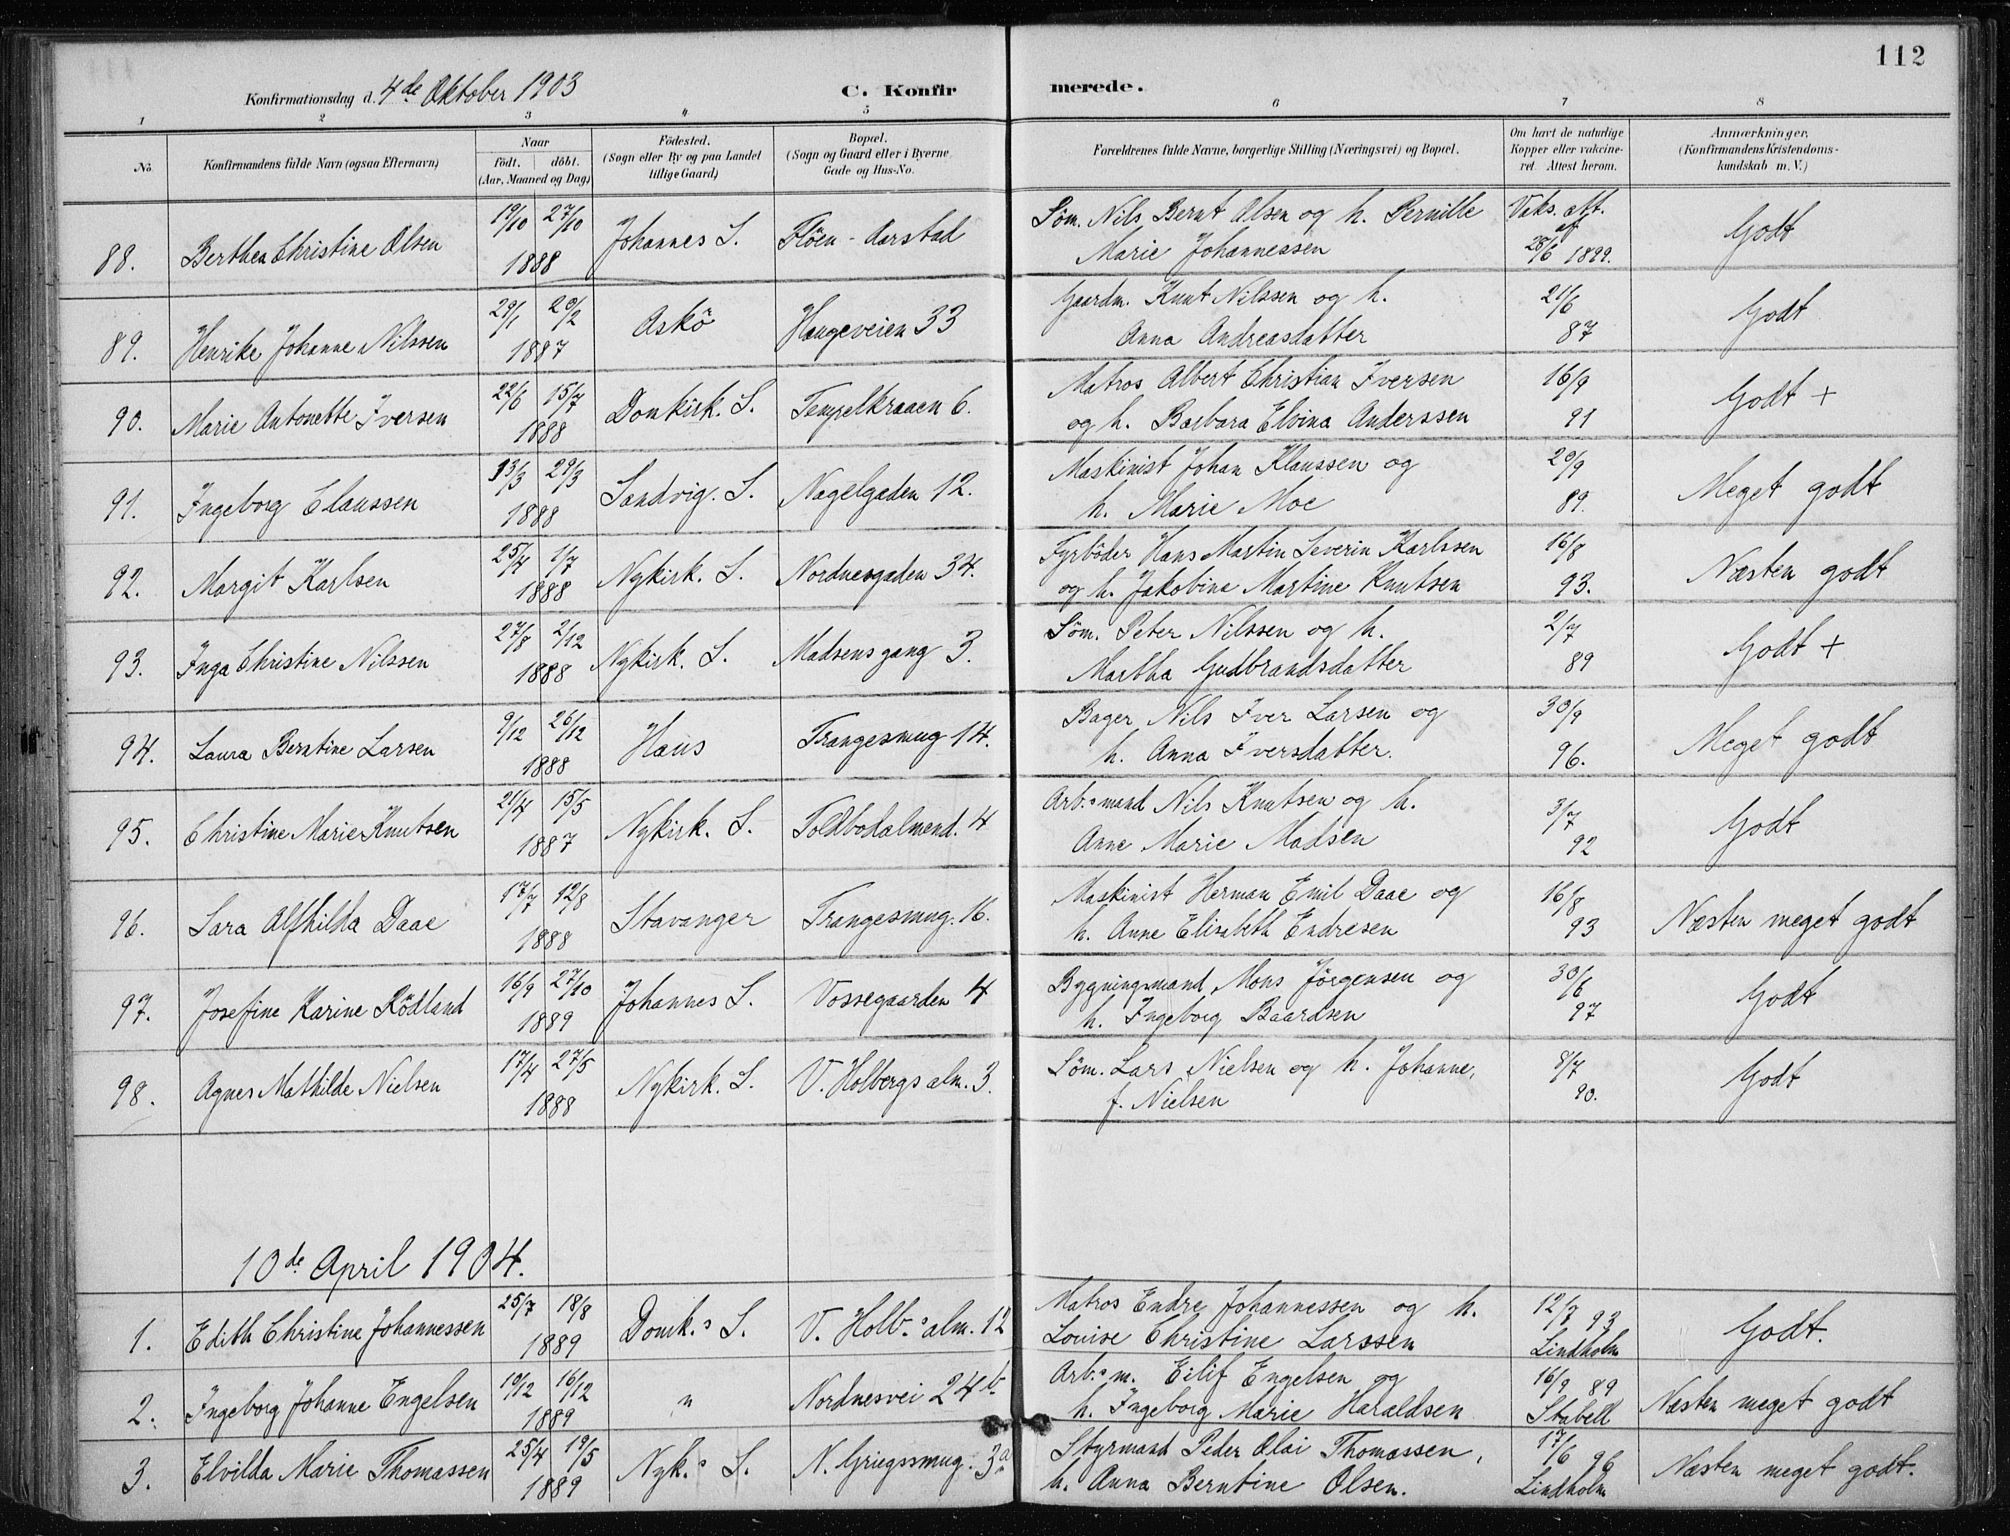 112
Konfirmationsdag d. 4de Oktober 1903
C. Konfirmerede.
1 2 3 4 5 6 7 8
No. Konfirmandens fulde Navn (ogsaa Efternavn) Naar födt. döbt. (Aar, Maaned og Dag) Födested. (Sogn eller By og paa Landet tillige Gaard) Bopæl. (Sogn og Gaard eller i Byerne Gade og Hus-No. Forældrenes fulde Navne, borgerlige Stilling (Næringsvei) og Bopæl. Om havt de naturlige Kopper eller vakcineret. Attest herom. Anmærkninger, (Konfirmandens Kristendomskundskab m. V.)
88. Berthea Christine Olsen 19/10 27/10 1888 Johannes S. Flöen - Aarstad Söm. Nils Bernt Olsen og h. Pernille Marie Johannessen Vaks. att. af 28/6 1899. Godt
89. Henrike Johanne Nilssen 29/1 20/2 1887 Askö Haugeveien 33 Gaardm. Knut Nilssen og h. Anna Andreasdatter 21/6 87 Godt
90. Marie Antonette Iversen 22/6 15/7 1888 Domkirk. S. Tempelkraaen 6. Matros Albert Christian Iversen og h. Barbara Elvina Anderssen 16/9 91 Godt +
91. Ingeborg Claussen 13/3 29/3 1888 Sandvig. S. Nagelgaden 12. Maskinist Johan Klaussen og h. Marie Moe 20/9 89. Meget godt
92. Margit Karlsen 25/4 1/7 1888 Nykirk. S. Nordnesgaden 34. Fyrböder Hans Martin Severin Karlssen og h. Jakobine Martine Knutsen 16/8 93. Næsten godt
93. Inga Christine Nilssen 27/8 2/12 1888 Nykirk. S. Madsensgang 3. Söm. Peter Nilssen og h. Martha Gudbrandsdatter 2/7 89 Godt +
94. Laura Berntine Larsen 9/12 26/12 1888 Haus Trangesmug 14. Bager Nils Iver Larsen og h. Anna Iversdatter. 30/9 96. Meget godt
95. Christine Marie Knutsen 21/4 15/5 1887 Nykirk. S. Toldbodalmend. 4 Arb.smand Nils Knutsen og h. Anne Marie Madsen 3/7 92 Godt
96. Sara Alfhilda Daae 17/7 12/8 1888 Stavanger Trangesmug. 16. Maskinist Herman Emil Daae og h. Anne Elisabeth Endresen 16/8 93 Næsten meget godt
97. Josefine Karine Rödland 16/9 27/10 1889 Johannes S. Vossegaarden 4 Bygningsmand Mons Jörgensen og h. Ingeborg Baardsen 30/6 97 Godt
98. Agnes Mathilde Nielsen 17/4 27/5 1888 Nykirk. S. V. Holbergs alm. 3. Söm. Lars Nielsen og h. Johanne, f. Nielsen 8/7 90. Godt
10de April 1904.
1. Edith Christine Johannessen 25/7 18/8 1889 Domk.s S. V. Holb.s alm. 12 Matros Endre Johannessen og h. Louise Christine Larssen 12/8 93 Lindholm Godt.
2. Ingeborg Johanne Engelsen 10/12 16/12 1889 " Nordnesvei 24 b Arb.s m. Eilif Engelsen og h. Ingeborg Marie Haraldsen 16/9 89 Stabell Næsten meget godt
3. Elvilda Marie Thomassen 25/4 19/5 1889 Nyk.s S. N. Griegssmug. 3a Styrmand Peder Olai Thomassen, h. Anna Berntine Olsen. 17/6 96 Lindholm Næsten meget godt.